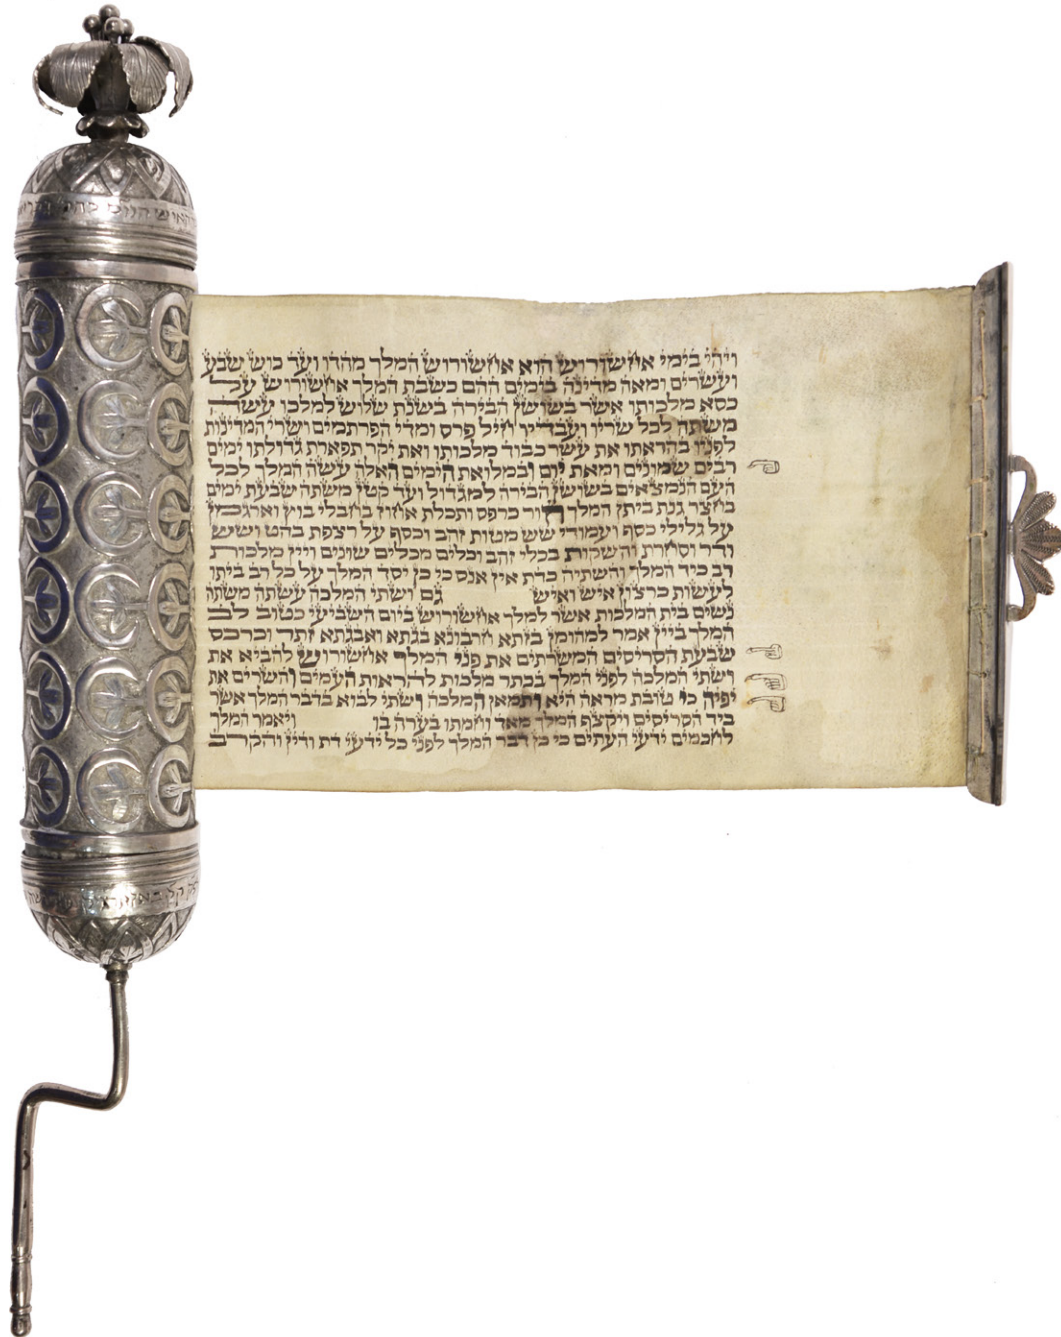 ויהי בימי אחשורוש הוא אחשורוש המלך מהדו ועד כוש שבע
ועשרים ומאה מדינה בימים ההם כשבת המלך אחשורוש על
כסא מלכותו אשר בשושן הבירה בשנת שלוש למלכו עשה
משתה לכל שריו ועבדיו חיל פרס ומדי הפרתמים ושרי המדינות
לפניו בהראתו את עשר כבוד מלכותו ואת יקר תפארת גדולתו ימים
רבים שמונים ומאת יום ובמלואת הימים האלה עשה המלך לכל
העם הנמצאים בשושן הבירה למגדול ועד קטן משתה שבעת ימים
בחצר גנת ביתן המלך חור כרפס ותכלת אחוז בחבלי בוץ וארגמן
על גלילי כסף ועמודי שש מטות זהב וכסף על רצפת בהט ושש
ודר וסחרת והשקות בכלי זהב וכלים מכלים שונים ויין מלכות
רב כיד המלך והשתיה כדת אין אנס כי כן יסד המלך על כל רב ביתו
לעשות כרצון איש ואיש גם ושתי המלכה עשתה משתה
נשים בית המלכות אשר למלך אחשורוש ביום השביעי כטוב לב
המלך ביין אמר למהומן בזתא חרבונא בגתא ואבגתא זתר וכרכס
שבעת הסריסים המשרתים את פני המלך אחשורוש להביא את
ושתי המלכה לפני המלך בכתר מלכות להראות העמים והשרים את
יפיה כי טובת מראה היא ותמאן המלכה ושתי לבוא בדבר המלך אשר
ביד הסריסים ויקצף המלך מאד וחמתו בערה בו ויאמר המלך
לחכמים ידעי העתים כי כן דבר המלך לפני כל ידעי דת ודין והקרב